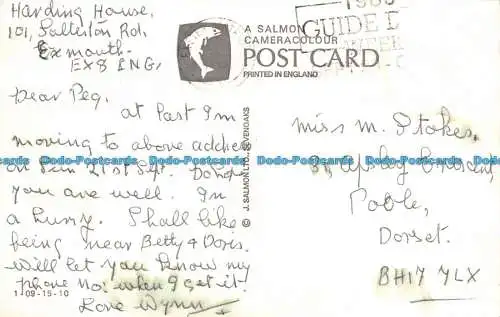 Harding House,
101, Salterton Rd.
Exmouth.
EX8 1NG.
Dear Peg,
at last I'm
moving to above address
on Sun 21st Sept. Do hope
you are well. In
a hurry. Shall like
being near Betty & Doris.
Will let you know my
phone no: when I get it.
Love Wynn
1-09-15-10
A SALMON
CAMERACOLOUR
POST CARD
PRINTED IN ENGLAND
GUIDE
© J. SALMON LTD., SEVENOAKS
Miss M. Stokes,
Crescent
Poole,
Dorset.
BH17 7LX
Dodo-Postcards Dodo-Postcards Dodo-Postcards Dodo-Postcards